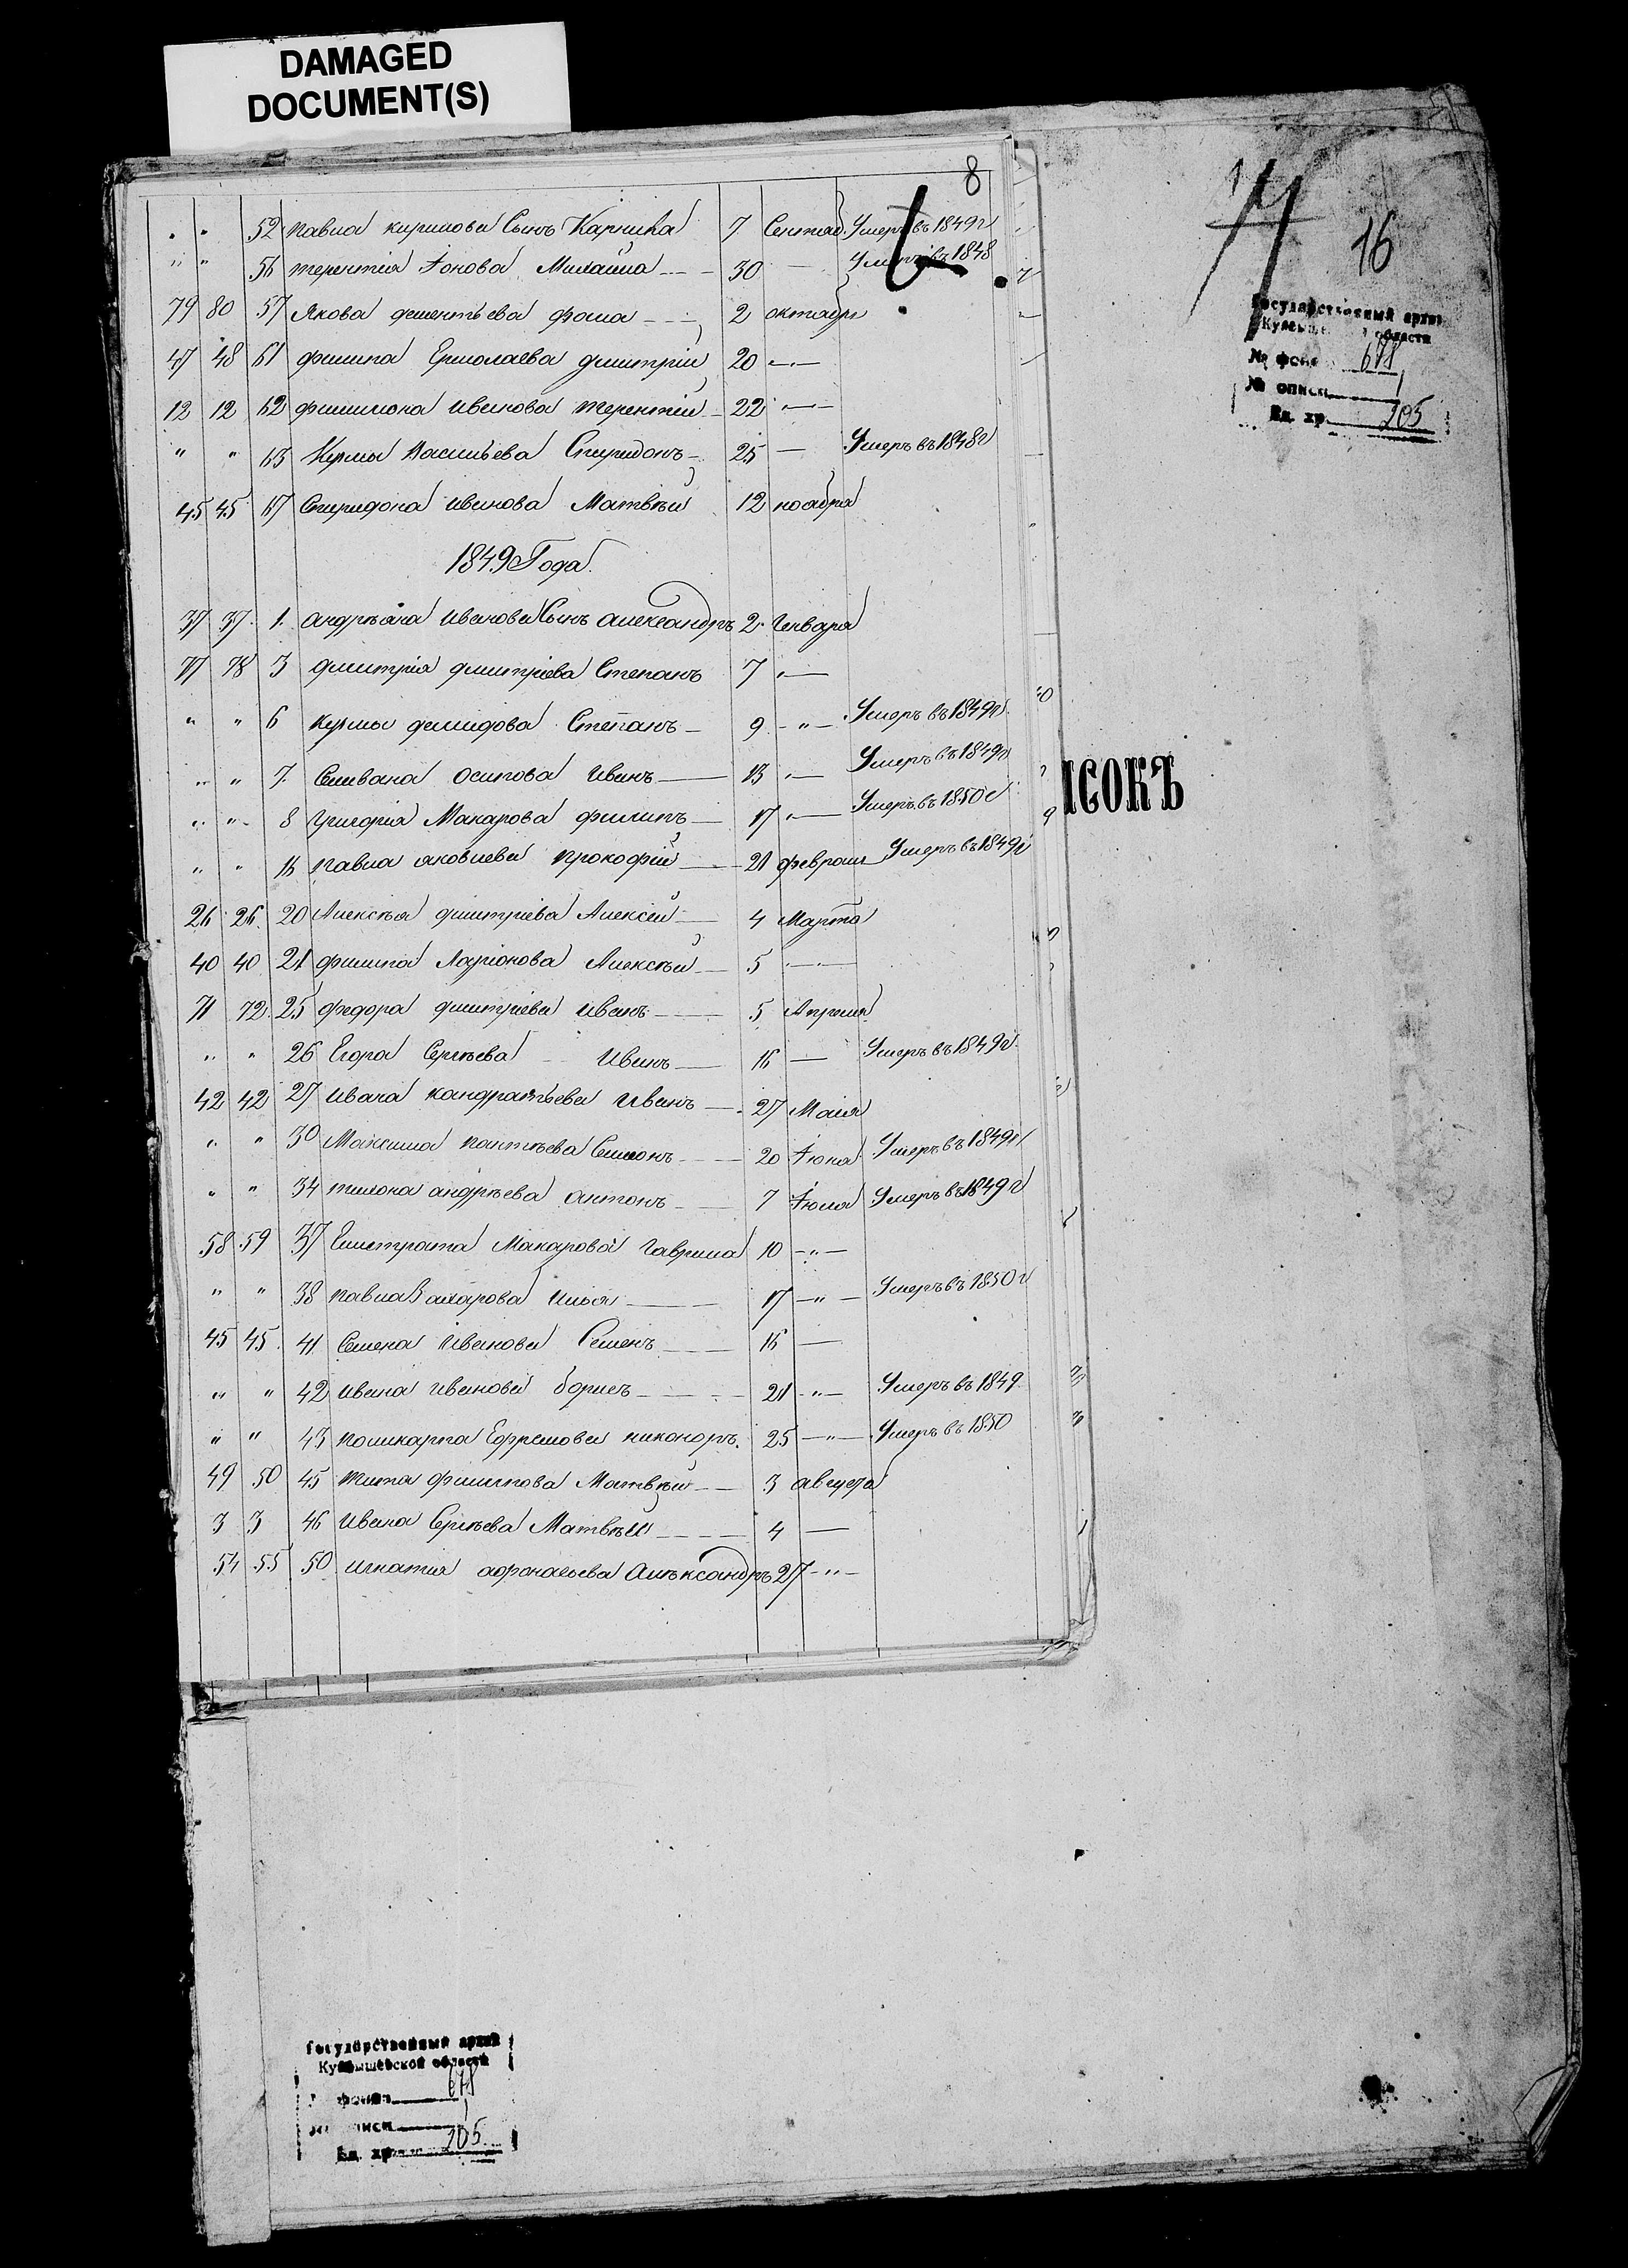 DAMAGED
DOCUMENT(S)
8
" " 52 павла кирилова Сынъ Карнила 7 Сентяб. Умеръ въ 1849г
" " 56 терентiя Iонова Михаила 30 — Умеръ въ 1848
79 80 57 Якова дементьева фома 2 октябр
47 48 61 филипа Ермолаева дмитрiй 20 —
12 12 62 филимона иванова терентiй 22 —
" " 63 Кузмы Васильева Спиридонъ 25 — Умеръ въ 1848г
45 45 67 Спиридона иванова Матвѣй 12 ноабря
1849 Года.
37 37 1. андрѣяна иванова Сынъ александръ 2 Генваря
77 78 3 дмитрiя дмитрiева Степанъ 7 "—
" " 6 кузмы демидова Степанъ 9 -"- Умеръ въ 1849г.
" " 7. Селивана осипова иванъ 13 "— Умеръ въ 1849г
" " 8 григорiя Макарова филипъ 17 "— Умеръ въ 1850г
" " 16 павла яковлева прокофiй 21 феврал Умеръ въ 1849г
26 26 20 Алексѣя дмитрiева Алексей 4 Марта
40 40 21 филипа Ларiонова Алексѣй 5 —
71 72 25 федора дмитрiева иванъ 5 Апреля
" " 26 Егора Сергѣева иванъ 16 — Умеръ въ 1849г.
42 42 27 ивана кандратьева иванъ 27 Маiя
" " 30 Максима пантѣева Семионъ 20 Iюня Умеръ въ 1849г
" " 34 тихона андрѣева антонъ 7 Iюля Умеръ въ 1849г
58 59 37 Елистрата Макарова гаврила 10 -"-
" " 38 павла Захарова илья 17 -"- Умеръ въ 1850г
45 45 41 Семена иванова Семенъ 16 —
" " 42 ивана иванова борисъ 21 -"- Умеръ въ 1849.
" " 43 поликарпа Ефремова никоноръ. 25 -"- Умеръ въ 1850
49 50 45 тита филипова Матвѣй 3 августа
3 3 46 ивана Сергѣева Матвѣй 4 —
54 55 50 игнатiя афонасьева Алѣксандръ 27 -"-
16
Государственный архив
области
№ фон 678
№ описи
Ед. хр. 205
ИСОКЪ
Государственный архив
Куйбышевской области
фонда 678
описи
Ед. хр. 205